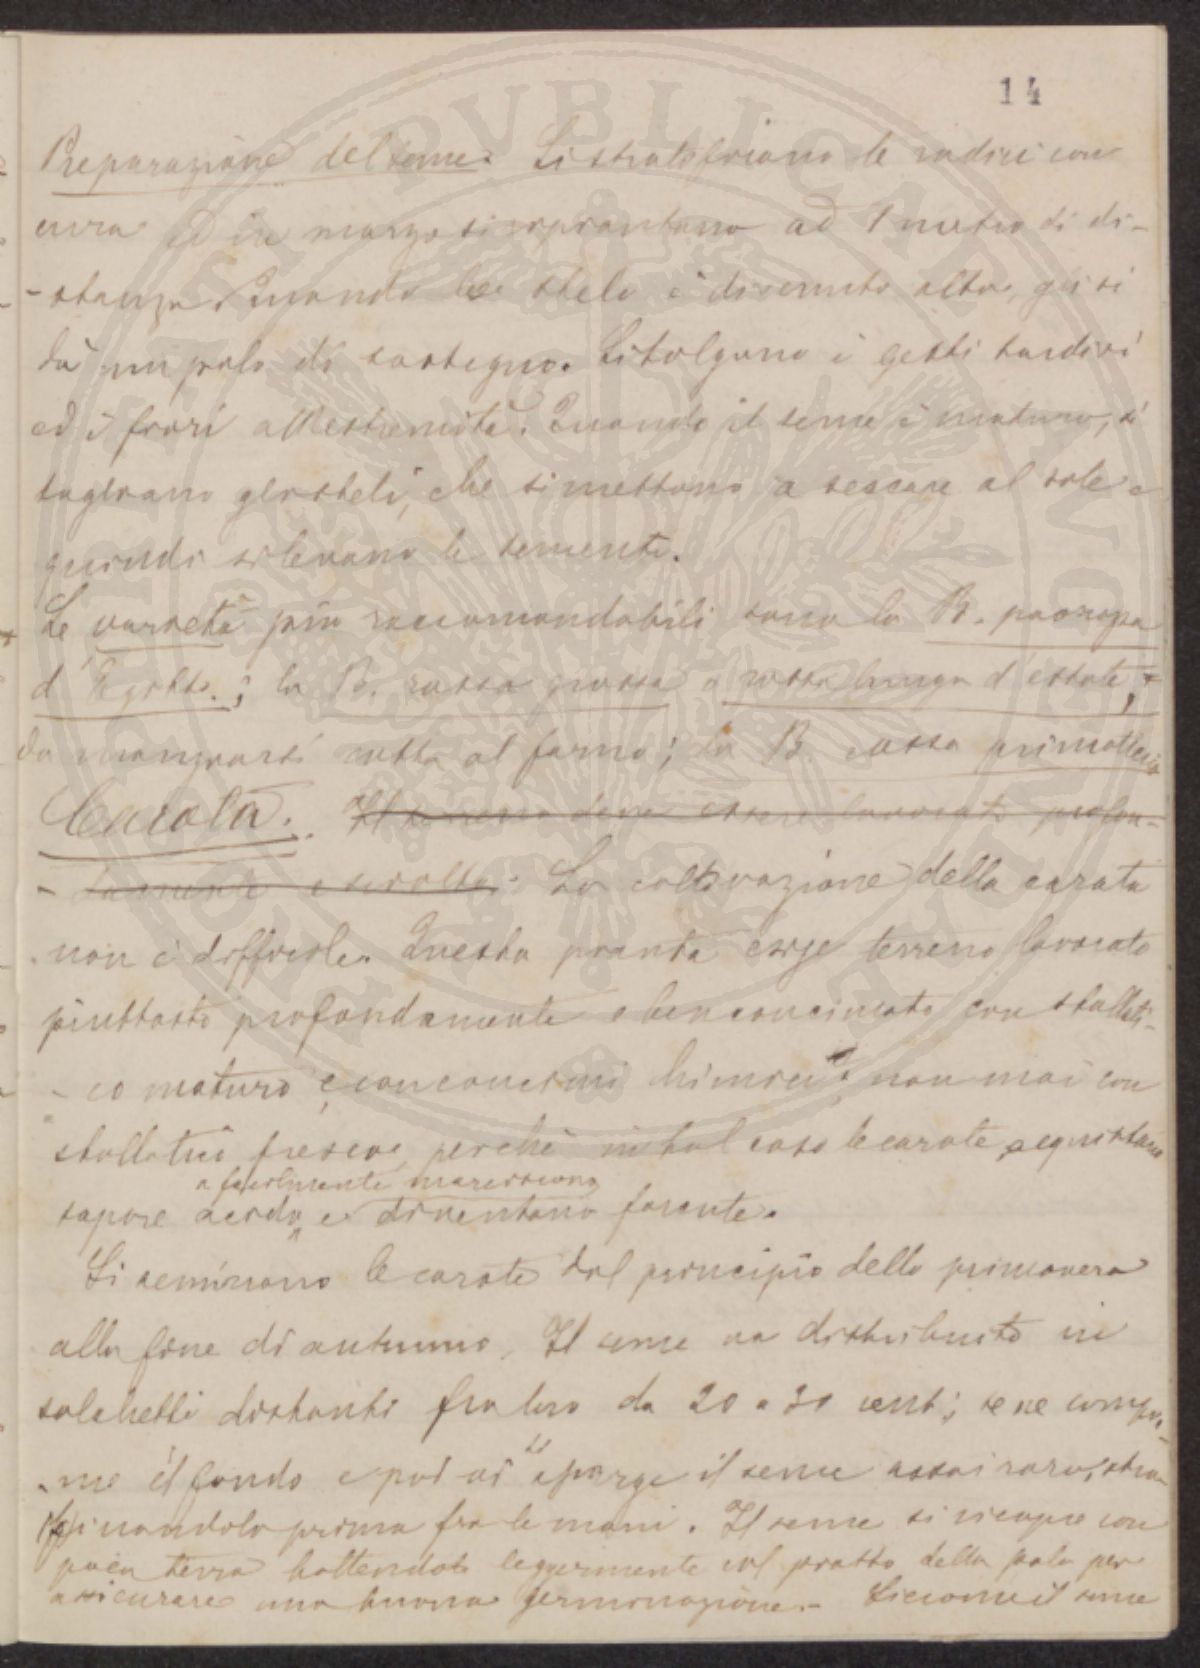 14
Preparazione del seme. Si strategiano le radici con
cura ed in marzo si ripiantano ad 1 metro di di-
-stanza. Quando lo stelo è divenuto alto, gli si
dà un palo di sostegno. Si tolgono i getti tardivi
ed i fiori all'estremità. Quando il seme è maturo, si
tagliano gli steli, che si mettono a seccare al sole e
quindi si levano le sementi.
Le varietà più raccomandabili sono la B.
d'Egitto.; la B. rossa grossa o rossa lunga d'estate,
da mangiarsi cotta al forno; la B. rossa
Carota. Il terreno deve essere lavorato profon-
-damente e sciolto. La coltivazione della carota
non è difficile. Questa pianta esige terreno lavorato
piuttosto profondamente e ben concimato con stallati-
-co maturo e con concimi chimici; non mai con
stallatici freschi, perchè in tal caso le carote acquistano
e facilmente marciscono
sapore acido, e diventano forcute.
Si seminano le carote dal principio della primavera
alla fine di autunno. Il seme va distribuito in
solchetti distanti fra loro da 20 a 30 cent; se ne compri-
-me il fondo e poi vi si sparge il seme assai raro, stro-
finandolo prima fra le mani. Il seme si ricopre con
poca terra battendola leggermente col piatto della pala per
assicurare una buona germinazione.- Siccome il seme